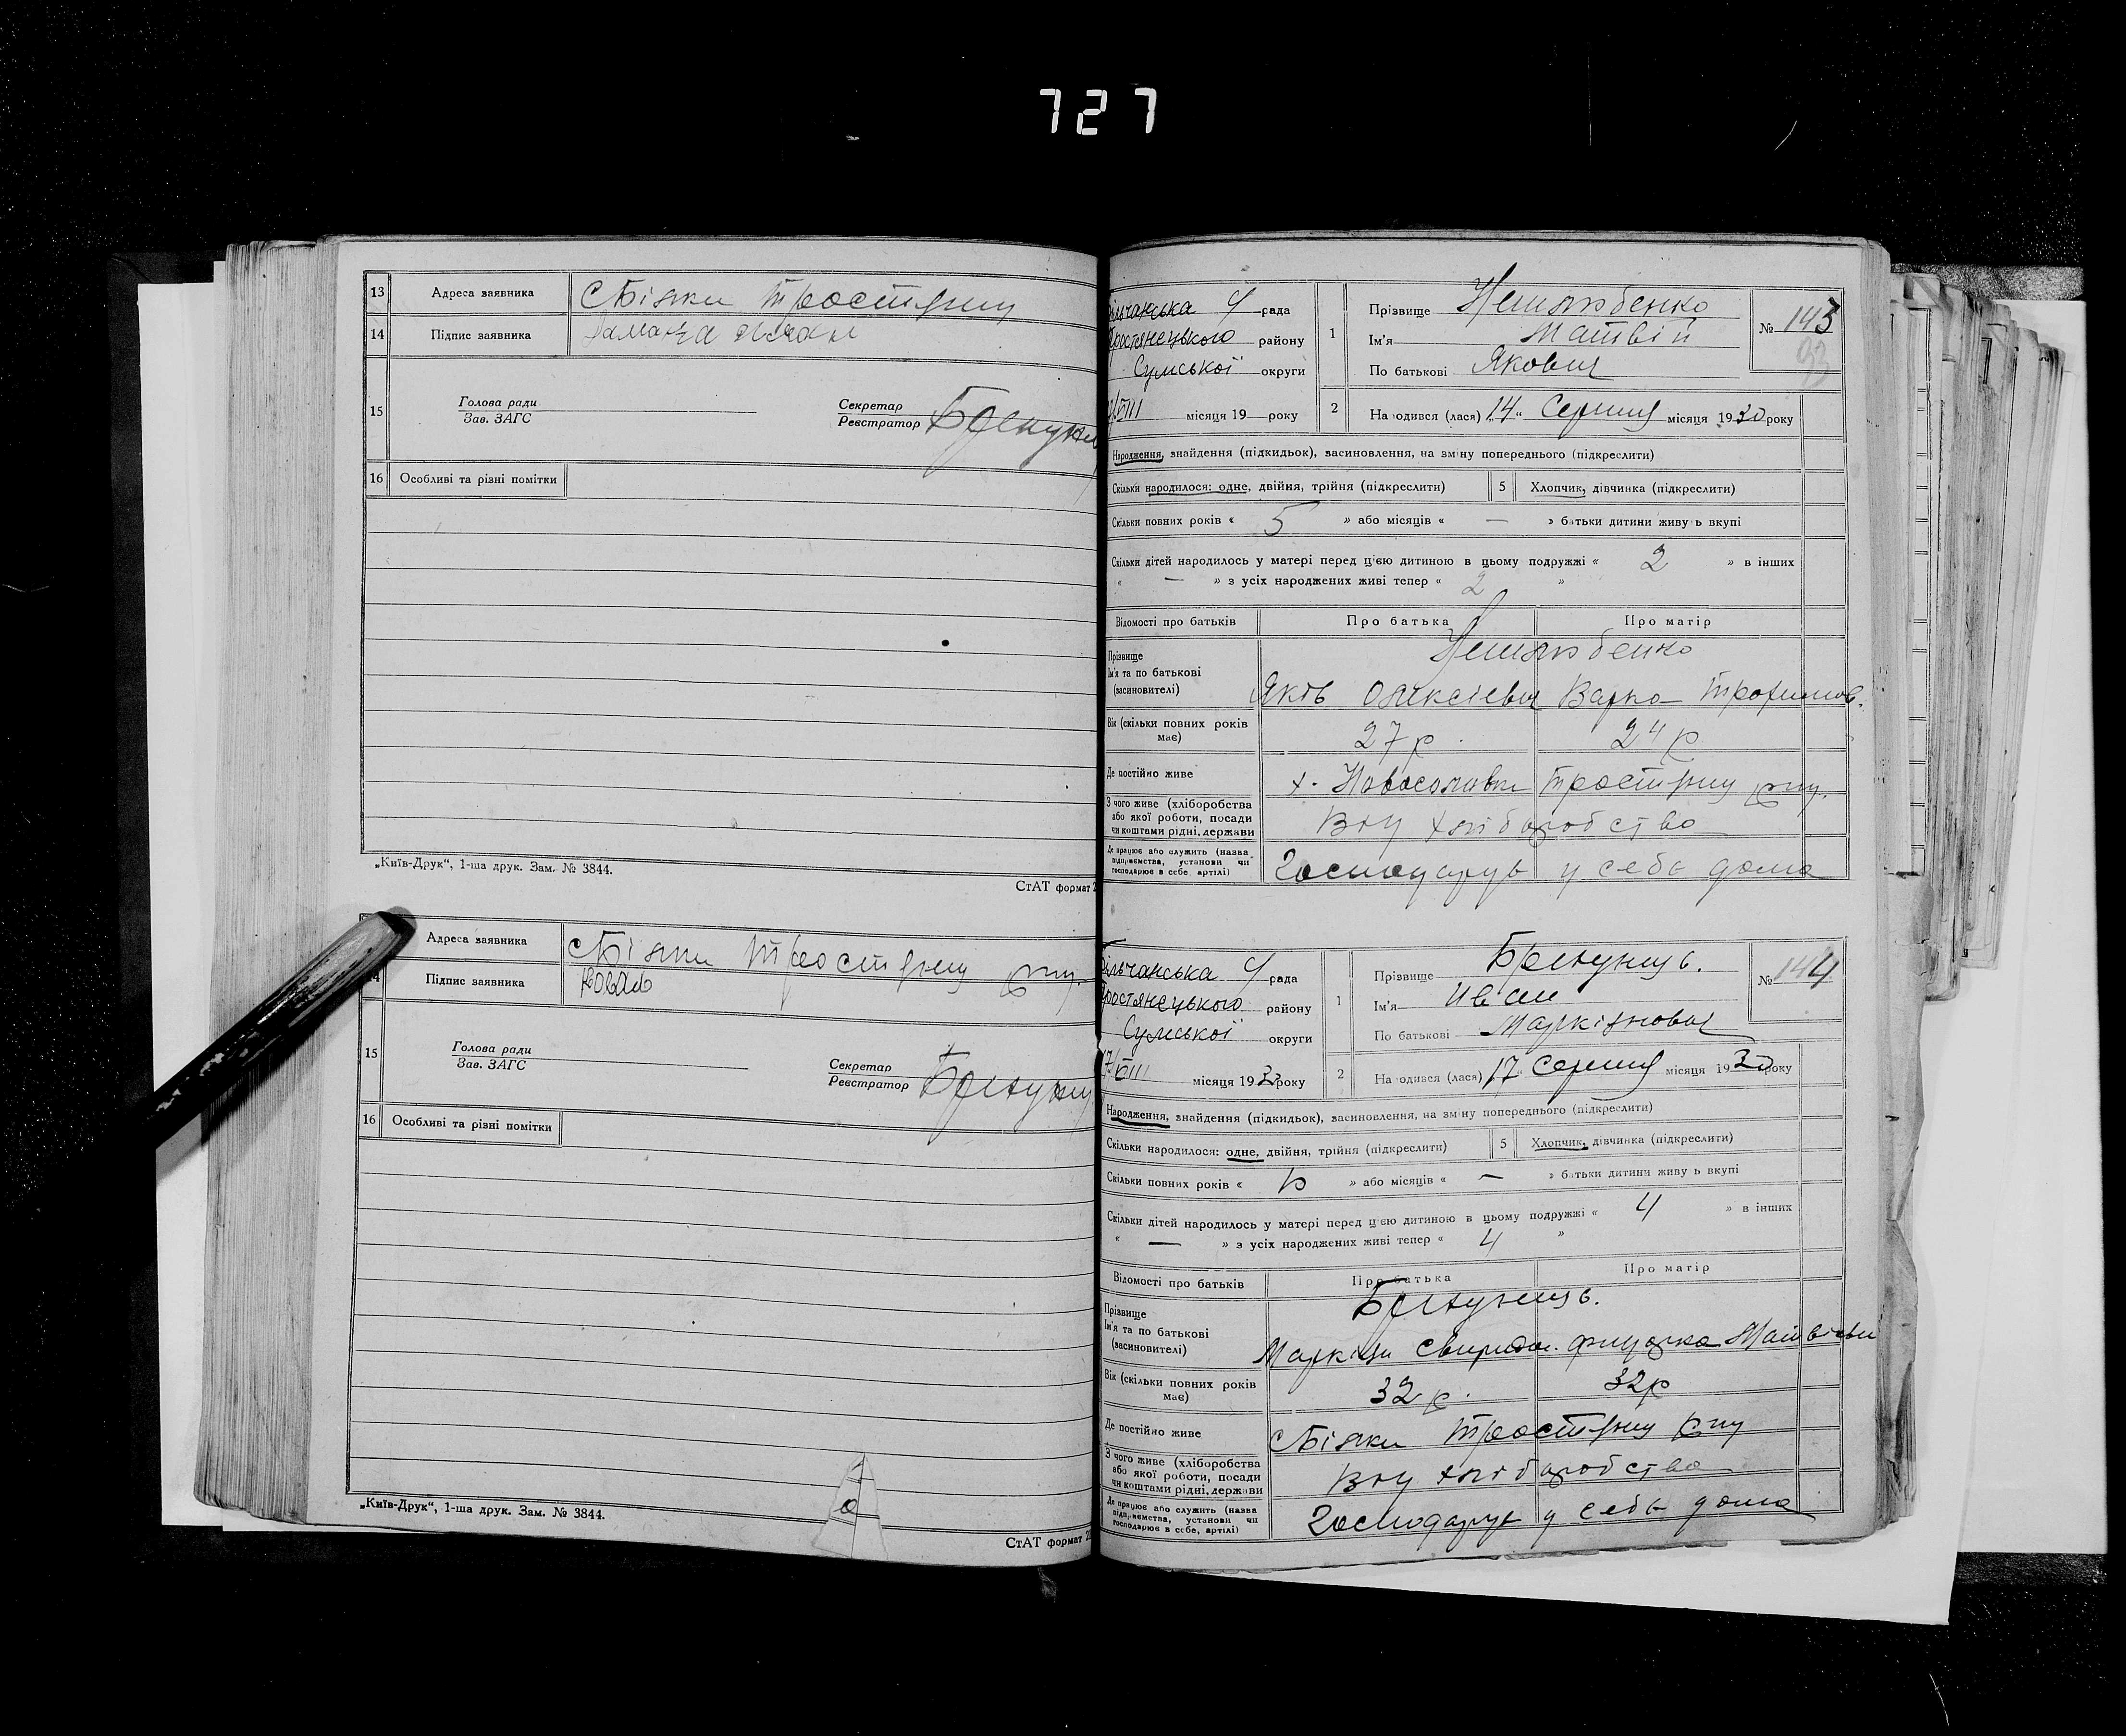 727
13 Адреса заявника с Білки Тростянец
14 Підпис заявника
15 Голова ради
Зав. ЗАГС
Секретар
Реєстратор
16 Особливі та різні помітки
„Київ-Друк“, 1-ша друк. Зам. № 3844.
СтАТ формат
Адреса заявника с Білки Тростянец р-ну.
Підпис заявника Коваль
15 Голова ради
Зав. ЗАГС
Секретар
Реєстратор
16 Особливі та різні помітки
„Київ-Друк“, 1-ша друк. Зам. № 3844.
СтАТ формат
рада
Тростянецького району
Сумської округи
/VIII місяця 19 року
1 Прізвище
Ім'я Матвій
По батькові Якович
№ 143
93
2 На одився (лася) „14“ Серпня місяця 1930 року
Народження, знайдення (підкидьок), засиновлення, на зміну попереднього (підкреслити)
Скільки народилося: одне, двійня, трійня (підкреслити) 5 Хлопчик, дівчинка (підкреслити)
Скільки повних років « 5 » або місяців « — » батьки дитини живу ь вкупі
Скільки дітей народилось у матері перед цією дитиною в цьому подружжі « 2 » в інших
« — » з усіх народжених живі тепер « 2 »
Відомості про батьків Про батька Про матір
Прізвище
Ім'я та по батькові
(засиновителі) Яків Олексієвич Варка Трохимов.
Вік (скільки повних років
має) 27 р. 24 р
Де постійно живе х. Новоселовка Тростянец р-ну.
З чого живе (хліборобства
або якої роботи, посади
чи коштами рідні, держави хліборобство
Де працює або служить (назва
підприємства, установи чи
господарює в себе, артілі) Господарує у себе дома
рада
Тростянецького району
Сумської округи
17/VIII місяця 1930 року
1 Прізвище
Ім'я Иван
По батькові Маркіянович
№ 144
2 На одився (лася) „17“ Серпня місяця 1930 року
Народження, знайдення (підкидьок), засиновлення, на зміну попереднього (підкреслити)
Скільки народилося: одне, двійня, трійня (підкреслити) 5 Хлопчик, дівчинка (підкреслити)
Скільки повних років « » або місяців « — » батьки дитини живу ь вкупі
Скільки дітей народилось у матері перед цією дитиною в цьому подружжі « 4 » в інших
« — » з усіх народжених живі тепер « 4 »
Відомості про батьків Про батька Про матір
Прізвище
Ім'я та по батькові
(засиновителі) Маркіян Свиридов.
Вік (скільки повних років
має) 32 р. 32 р
Де постійно живе с Білки Тростянец р-ну
З чого живе (хліборобства
або якої роботи, посади
чи коштами рідні, держави хліборобство
Де працює або служить (назва
підприємства, установи чи
господарює в себе, артілі) Господарує у себе дома